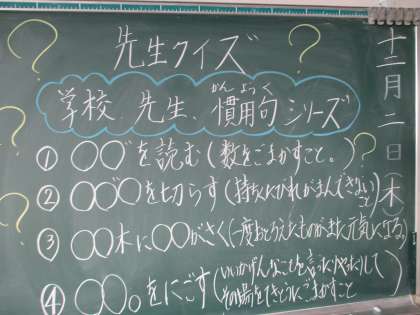 十二月二日(木)
先生クイズ
かんようく
学校、先生、慣用句シリーズ
① ○○゛を読む(数をごまかすこと。)
② ○○゛○を切らす(持ちきれがまんできないこと)
③ ○○木に○○がさく(一度おとろえたものがまた元気になる。)
④ ○○。をにごす(いいかげんなことを言ったりやったりして
その場をてきとうにごまかすこと